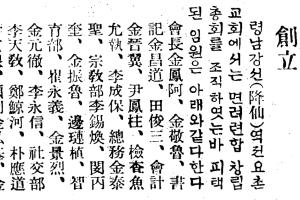 創立
령남강선(降仙)역전요촌
교회에서는 면려련합 창립
총회를 조직하엿는바 피택
된 임원은 아래와갓다한다
會長金鳳阿、金敬魯、書
記金昌道、田俊三、會計
金晋翼、尹鳳柱、檢査魚
允執、李成保、總務金泰
聖、宗敎部李錫煥、閔丙
奎、金振魯、邊璉植、智
育部、崔永義、金景烈、
金元徹、李永信、社交部
李天敎、鄭鯨河、朴應道